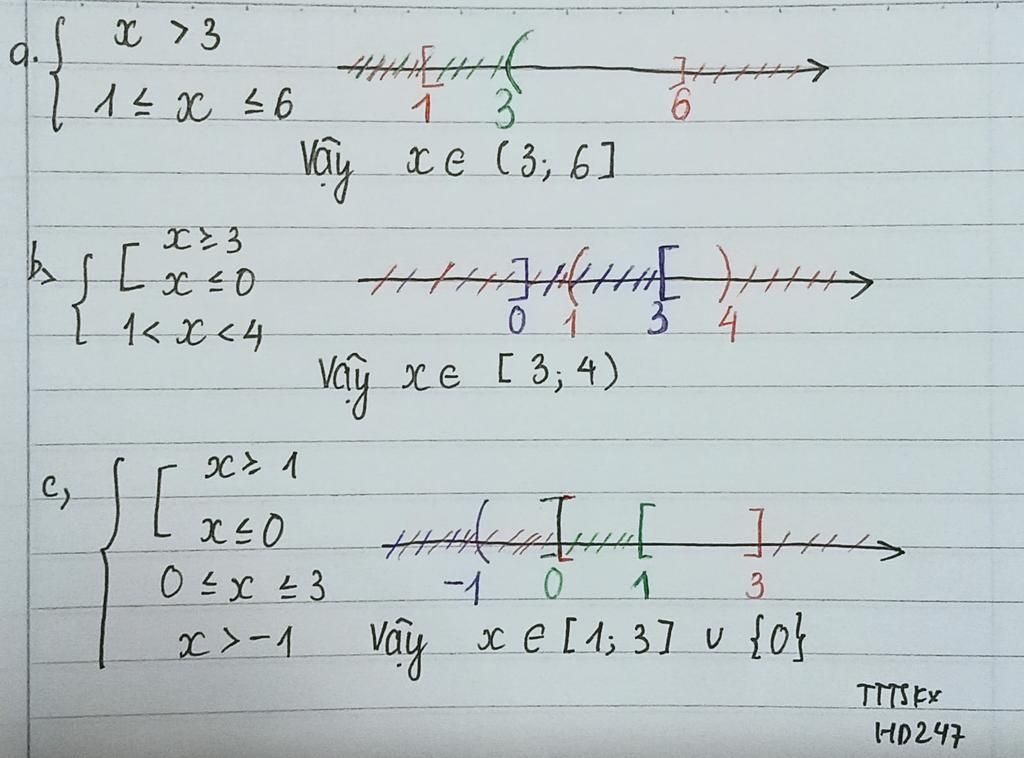 a. { x > 3
1 ≤ x ≤ 6
1 3 6
Vậy x ∈ (3; 6]
b, { [ x ≥ 3
x ≤ 0
1 < x < 4
0 1 3 4
Vậy x ∈ [3; 4)
c, { [ x ≥ 1
x ≤ 0
0 ≤ x ≤ 3
x > -1
-1 0 1 3
Vậy x ∈ [1; 3] ∪ {0}
TTTSKX
HD247